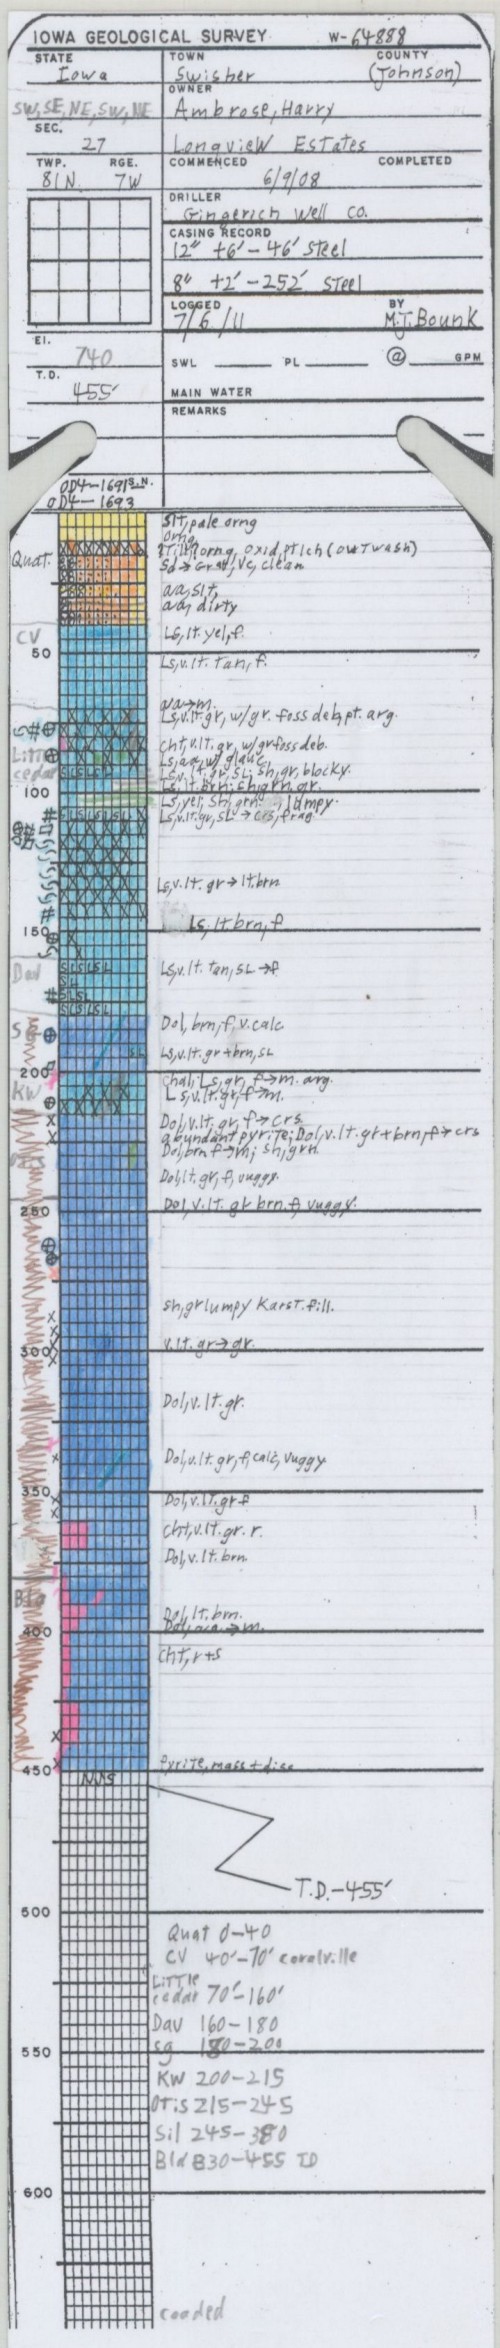 IOWA GEOLOGICAL SURVEY W-64888
STATE TOWN COUNTY
Iowa Swisher (Johnson)
OWNER
SW, SE, NE, SW, NE Ambrose, Harry
SEC.
27 Longview Estates
TWP. RGE. COMMENCED COMPLETED
81N. 7W 6/9/08
DRILLER
Gingerich Well Co.
CASING RECORD
12" +6'-46' Steel
8" +2'-252' Steel
LOGGED BY
7/6/11 M.J. Bounk
El.
740 SWL PL @ GPM
T.D.
455' MAIN WATER
REMARKS
OD4-1691 S.N.
OD4-1693
Slt, pale orng
orng
Till, orng, oxid, ptlch (outwash)
Quat. Sd→Gravl, vc, clean
aa, Slt,
aa, dirty
CV Ls, lt. yel, f.
50 Ls, v. lt. tan, f.
aa→m.
Ls, v. lt. gr, w/gr. foss deb, pt. arg.
cht, v. lt. gr, w/gr foss deb.
Little Ls, aa, w/ glauc
cedar Ls, v. lt. gr, SL; sh, gr, blocky.
Ls, lt. brn; sh, grn, gr.
100 Ls, yel, sh, grn, lumpy.
Ls, v. lt. gr, SL → crs, frag.
Ls, v. lt. gr → lt. brn
Ls, lt. brn, f
150
Dav Ls, v. lt. tan, SL → f
Dol, brn, f, v. calc
SG Ls, v. lt. gr + brn, SL
200
chal, Ls, gr, f→m. arg.
KW Ls, v. lt. gr, f→m.
Dol, v. lt. gr, f→crs
abundant pyrite; Dol, v. lt. gr + brn, f→crs
Dol, brn f→m; sh, grn.
Dol, lt. gr, f, vuggy.
250 Dol, v. lt. gr brn. f, vuggy.
sh, gr lumpy Karst. fill.
300 v. lt. gr→gr.
Dol, v. lt. gr.
Dol, v. lt. gr, f, calc, vuggy
350 Dol, v. lt. gr f
cht, v. lt. gr. r.
Dol, v. lt. brn
Bld Dol, lt. brn.
400 Dol, aa →m.
cht, r+s
450 Pyrite, mass + disc
NJS
T.D.-455'
500
Quat 0-40
CV 40'-70' coralville
Little
cedar 70'-160'
Dav 160-180
550 Sg 180-200
KW 200-215
Otis 215-245
Sil 245-380
Bld 830-455 TD
600
coded